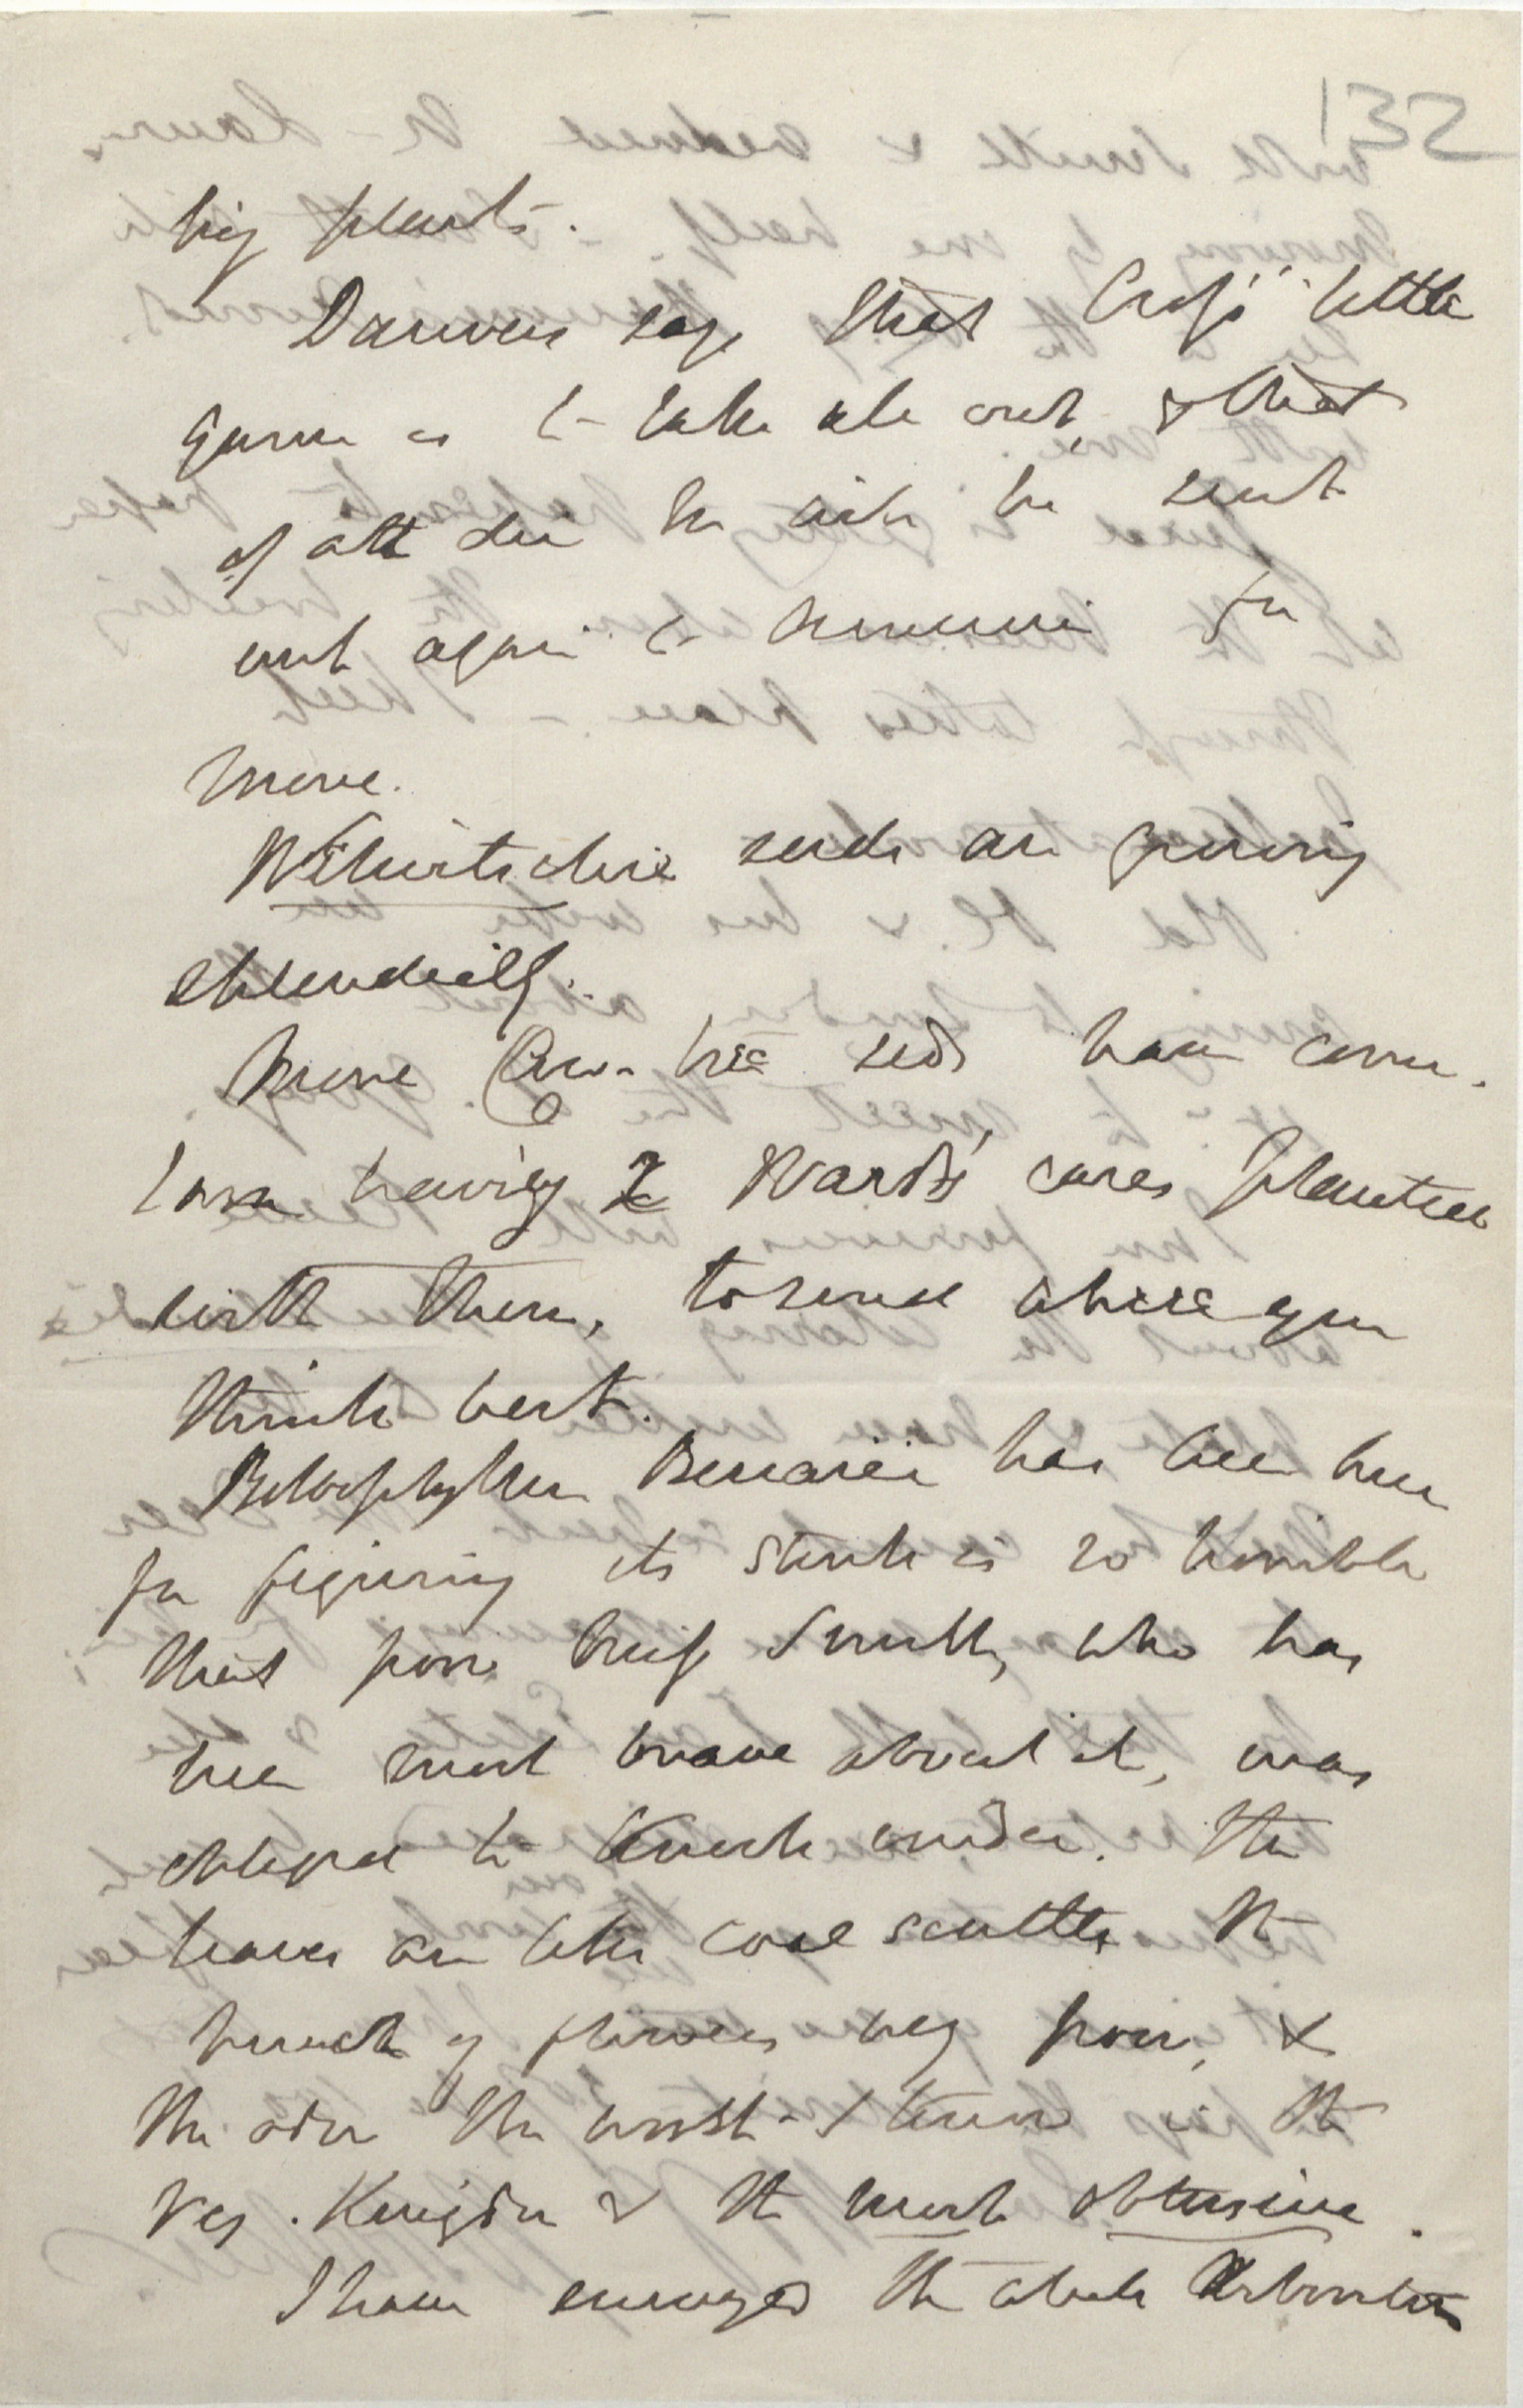 big plants.
Darwin says that Cross' little
game is to take all out, & that
if all die he will be sent
out again to Amazon for
more.
Welwitschia seeds are growing
splendidly.
More Cow-tree seeds have come.
I am having 2 Wards' cases planted
with them, to send where you
think best.
Bulbophyllum Beccarii has been here
for figuring its stink is so horrible
that poor Miss Smith, who has
been most brave about it, was
obliged to knock under. The
leaves are like coal scuttles the
bunch of flowers very poor, &
the odor the worst I know in the
Veg. Kingdom & the most obtrusive.
I have surveyed the whole Arboretum